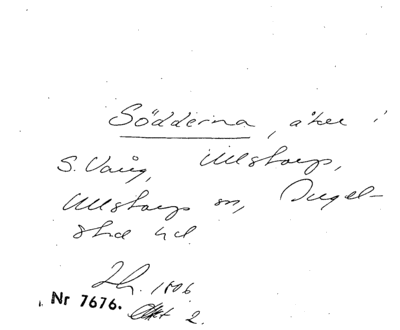 Södderna, åker i
S. Vång, Ullstorps,
Ullstorps sn, Ingel-
sta hd.
Lh. 1806
Nr 7676. Akt 2.